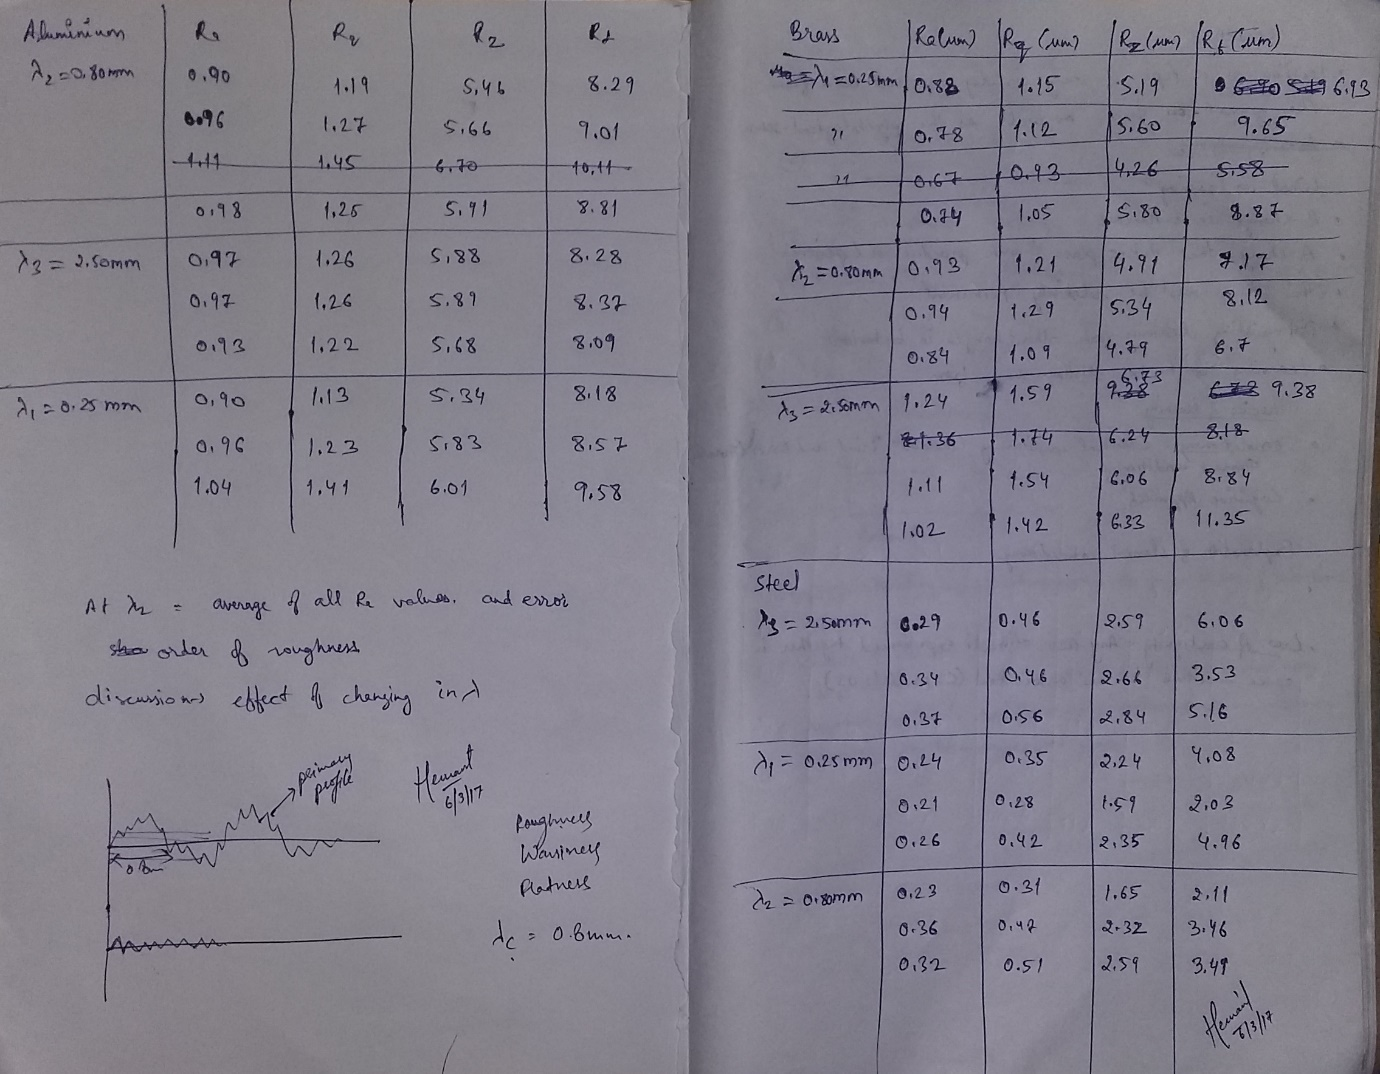 Aluminium Ra Rq Rz Rt
λ2 = 0.80mm 0.90 1.19 5.46 8.29
0.96 1.27 5.66 9.01
1.11 1.45 6.70 10.11
0.98 1.25 5.91 8.81
λ3 = 2.50mm 0.97 1.26 5.88 8.28
0.97 1.26 5.89 8.37
0.93 1.22 5.68 8.09
λ1 = 0.25 mm 0.90 1.13 5.34 8.18
0.96 1.23 5.83 8.57
1.04 1.41 6.01 9.58
At λ2 = average of all Ra values. and error
order of roughness
discussions effect of changing in λ
primary
profile
Hemant
6/3/17
Roughness
Waviness
Flatness
λc = 0.8mm.
Brass Ra(um) Rq (um) Rz (um) Rt (um)
λ1 = 0.25mm 0.88 1.15 5.19 6.93
" 0.78 1.12 5.60 9.65
" 0.67 0.93 4.26 5.58
0.74 1.05 5.80 8.87
λ2 = 0.80mm 0.93 1.21 4.91 7.17
0.94 1.29 5.34 8.12
0.84 1.09 4.79 6.7
λ3 = 2.50mm 1.24 1.59 6.73 9.38
1.36 1.74 6.24 8.18
1.11 1.54 6.06 8.84
1.02 1.42 6.33 11.35
Steel
λ3 = 2.50mm 0.29 0.46 2.59 6.06
0.34 0.46 2.66 3.53
0.37 0.56 2.84 5.16
λ1 = 0.25mm 0.24 0.35 2.24 4.08
0.21 0.28 1.59 2.03
0.26 0.42 2.35 4.96
λ2 = 0.80mm 0.23 0.31 1.65 2.11
0.36 0.47 2.32 3.46
0.32 0.51 2.59 3.49
Hemant
6/3/17